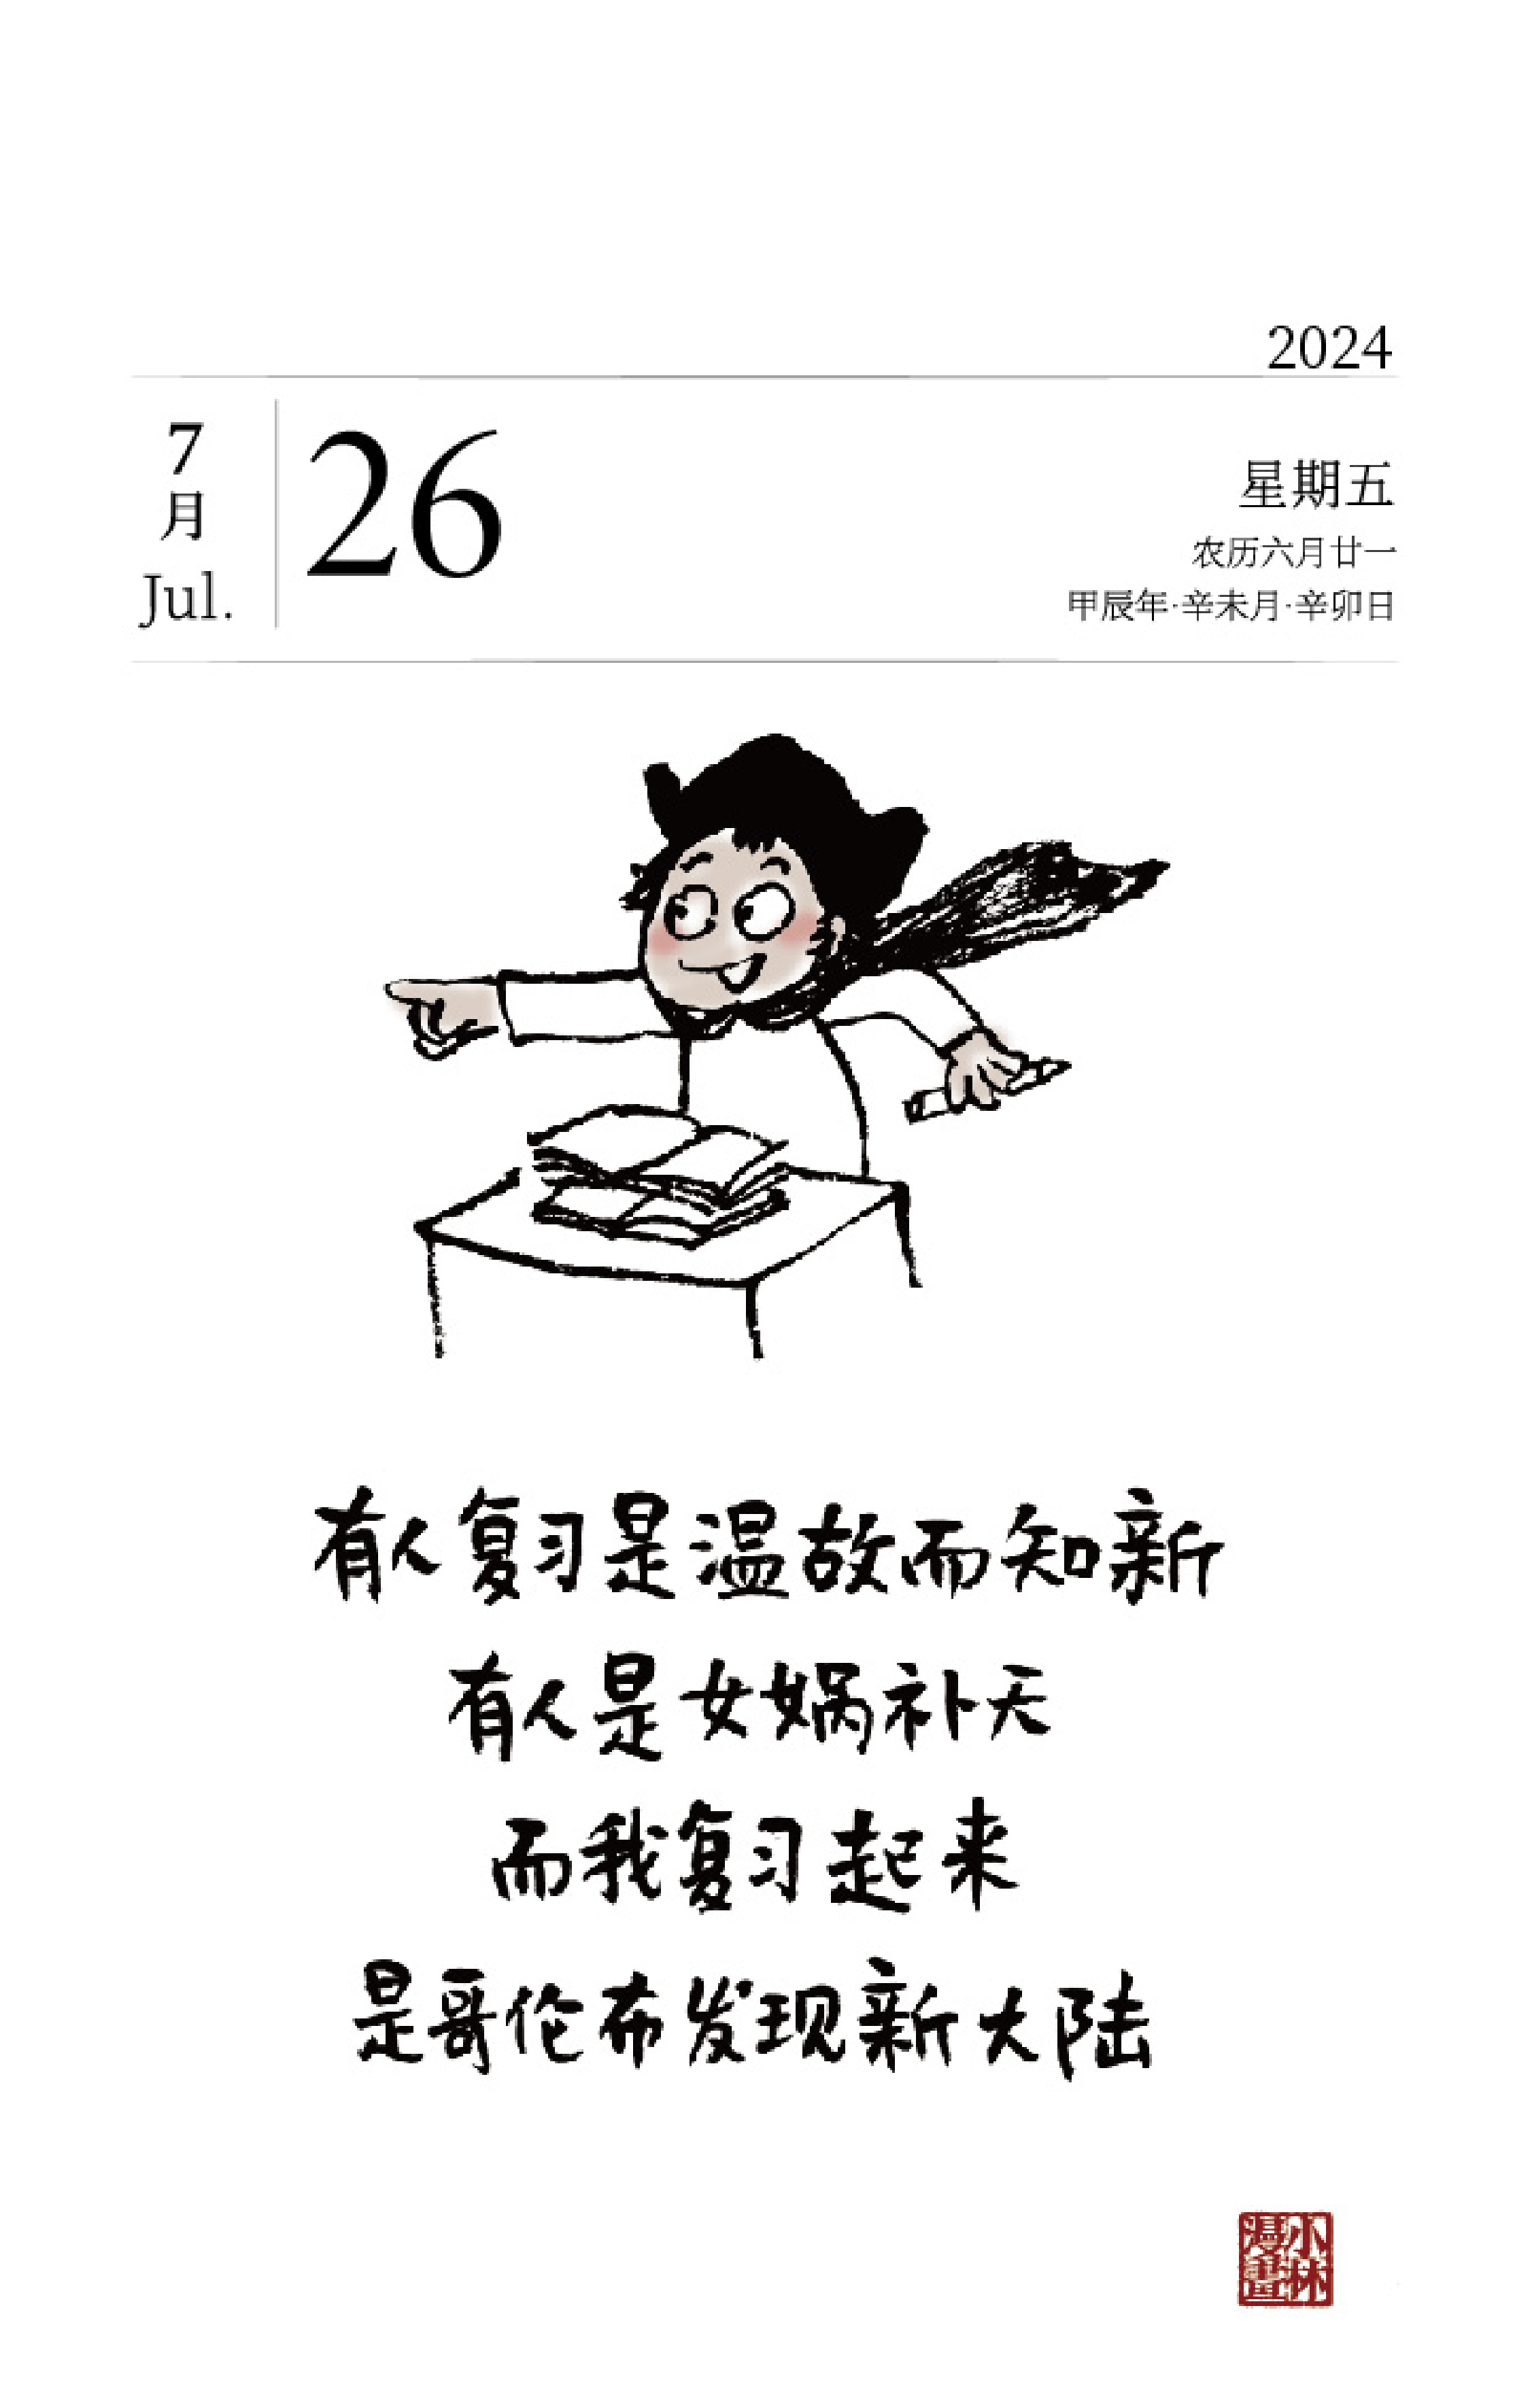 2024
7
月
Jul.
26
星期五
农历六月廿一
甲辰年·辛未月·辛卯日
有人复习是温故而知新
有人是女娲补天
而我复习起来
是哥伦布发现新大陆
小林
漫画